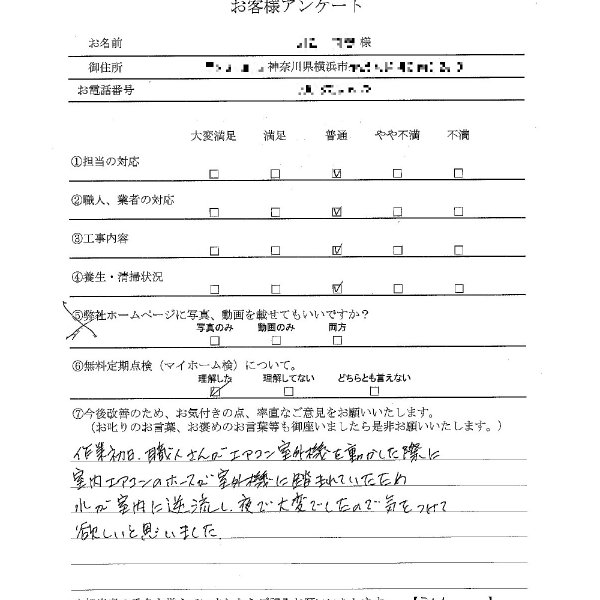 お客様アンケート
お名前 様
御住所 神奈川県横浜市
お電話番号
大変満足 満足 普通 やや不満 不満
①担当の対応
②職人、業者の対応
③工事内容
④養生・清掃状況
⑤弊社ホームページに写真、動画を載せてもいいですか?
写真のみ 動画のみ 両方
⑥無料定期点検(マイホーム検)について。
理解した 理解してない どちらとも言えない
⑦今後改善のため、お気付きの点、率直なご意見をお願いいたします。
(お叱りのお言葉、お褒めのお言葉等も御座いましたら是非お願いいたします。)
作業初日、職人さんがエアコン室外機を動かした際に
室内エアコンのホースが室外機に踏まれていたため
水が室内に逆流し、夜で大変でしたので気をつけて
欲しいと思いました